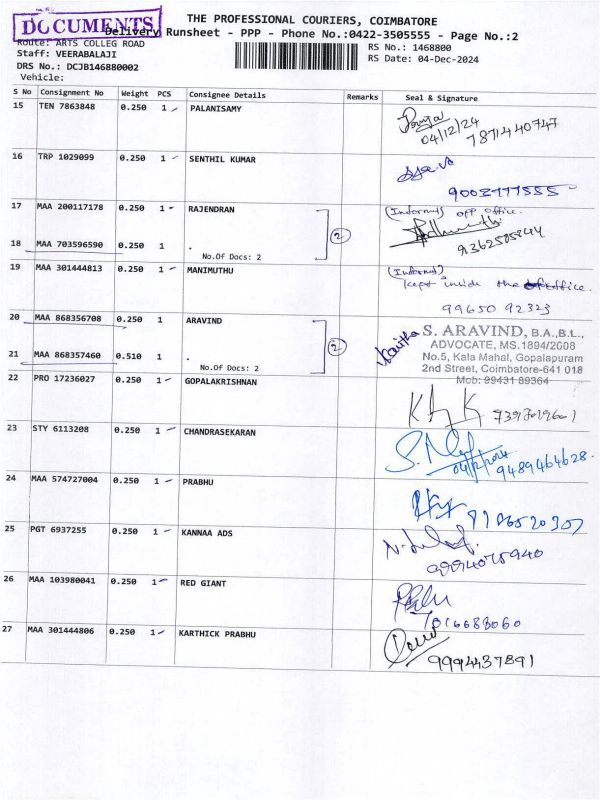 DOCUMENTS
THE PROFESSIONAL COURIERS, COIMBATORE
Delivery Runsheet - PPP - Phone No.:0422-3505555 - Page No.:2
Route: ARTS COLLEG ROAD
RS No.: 1468800
Staff: VEERABALAJI
RS Date: 04-Dec-2024
DRS No.: DCJB146880002
Vehicle:
S No Consignment No Weight PCS Consignee Details Remarks Seal & Signature
15 TEN 7863848 0.250 1 PALANISAMY
04/12/24
7871440747
16 TRP 1029099 0.250 1 SENTHIL KUMAR
9003777555
17 MAA 200117178 0.250 1 RAJENDRAN
(Informed) opp office.
2
18 MAA 703596590 0.250 1 .
No.Of Docs: 2
19 MAA 301444813 0.250 1 MANIMUTHU
(Informed)
kept inside the office.
99650 92323
20 MAA 868356708 0.250 1 ARAVIND
2
S. ARAVIND, B.A.,B.L.,
ADVOCATE, MS.1894/2008
No.5, Kala Mahal, Gopalapuram
2nd Street, Coimbatore-641 018
Mob: 99431 89364
21 MAA 868357460 0.510 1 .
No.Of Docs: 2
22 PRO 17236027 0.250 1 GOPALAKRISHNAN
23 STY 6113208 0.250 1 CHANDRASEKARAN
9489464628
24 MAA 574727004 0.250 1 PRABHU
25 PGT 6937255 0.250 1 KANNAA ADS
9994075940
26 MAA 103980041 0.250 1 RED GIANT
27 MAA 301444806 0.250 1 KARTHICK PRABHU
9994437891